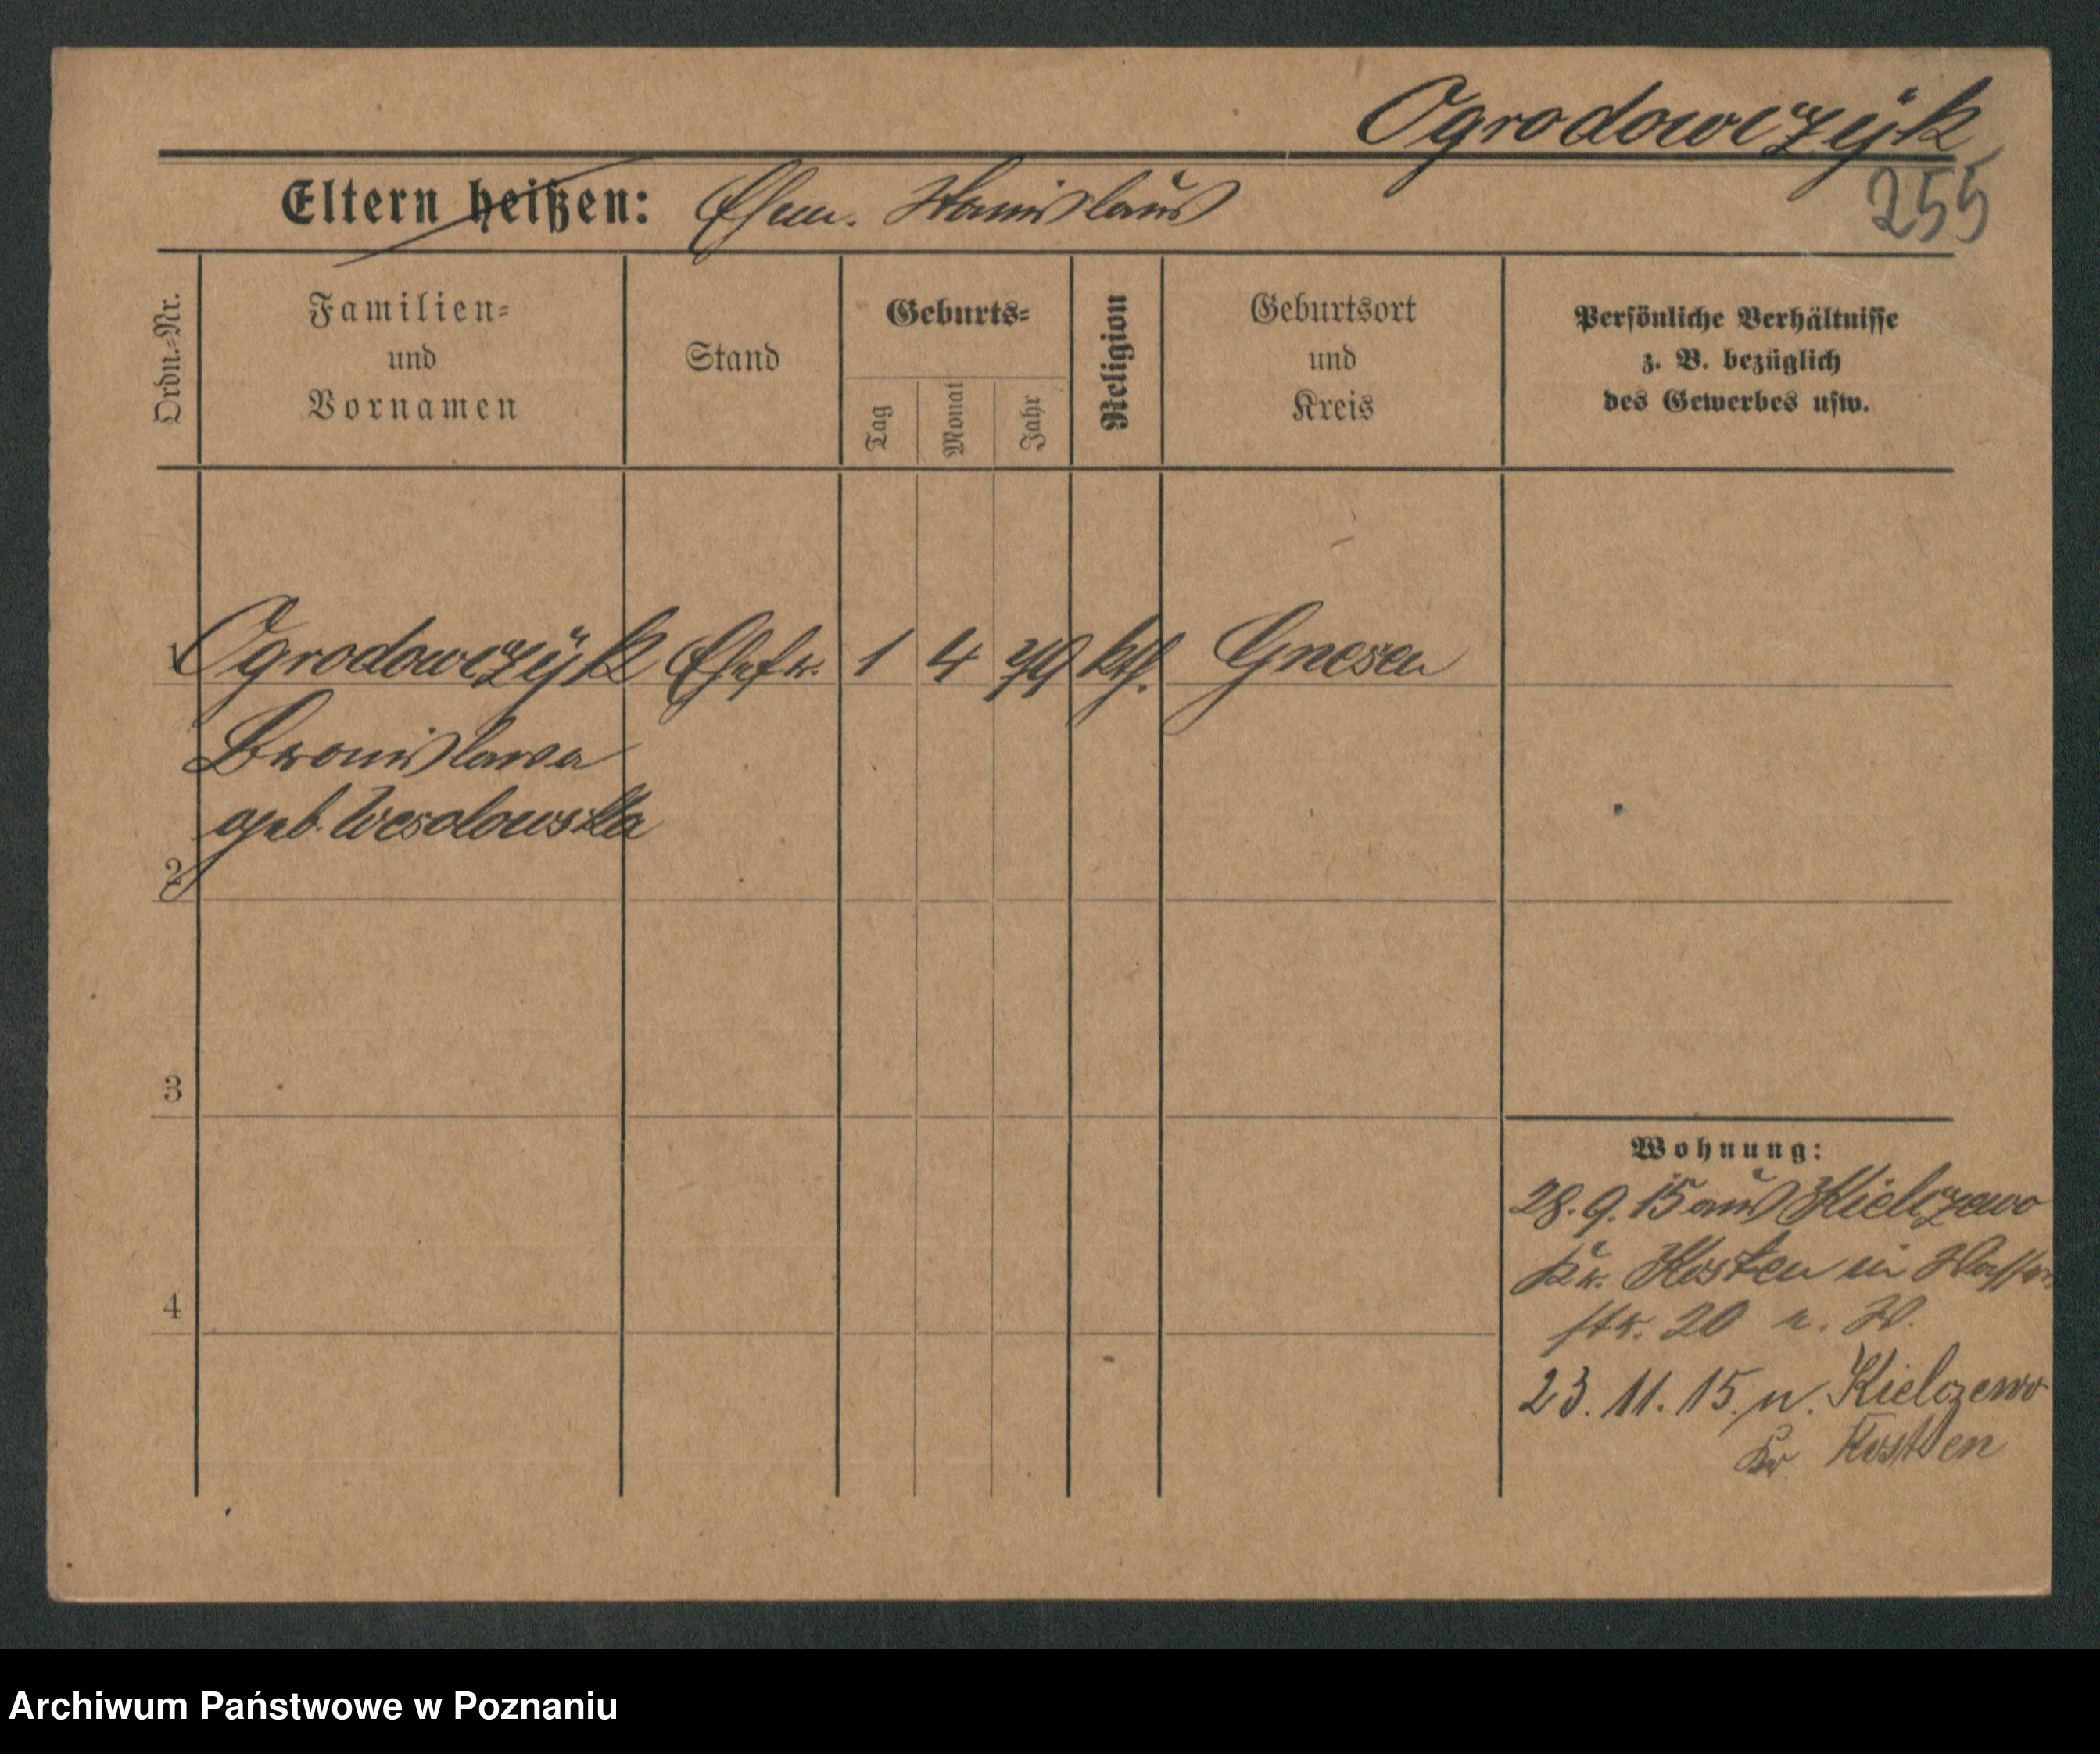 Ogrodowczÿk
255
Eltern heißen: Ehem. Stanislaus
Ordn.-Nr.
Familien-
und
Vornamen
Stand
Geburts-
Tag
Monat
Jahr
Religion
Geburtsort
und
Kreis
Persönliche Verhältnisse
z. B. bezüglich
des Gewerbes usw.
1 Ogrodowczÿk Ehefr. 1 4 79 kth. Gnesen
Bronislawa
geb. Wesolowska
2
3
4
Wohnung:
28. 9. 15 aus Kielczewo
Kr. Kosten in Wasser
str. 20 b. W.
23. 11. 15. n. Kielczewo
Kr. Kosten
Archiwum Państwowe w Poznaniu